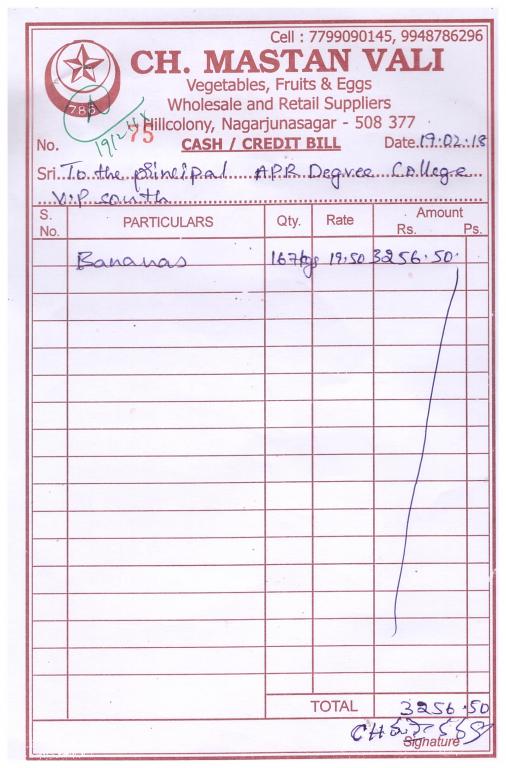 Cell : 7799090145, 9948786296
786
CH. MASTAN VALI
Vegetables, Fruits & Eggs
Wholesale and Retail Suppliers
Hillcolony, Nagarjunasagar - 508 377
No. 75 CASH / CREDIT BILL Date. 19.02.18
Sri. To the principal APR Degree College
V.P South
S. No. PARTICULARS Qty. Rate Amount Rs. Ps.
Bananas 167kgs 19.50 3256.50
TOTAL 3256.50
Signature